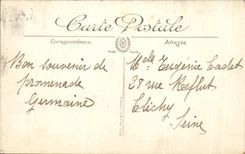 Carte Postale
Correspondance
Adresse
Bon souvenir de
promenade
Germaine
Mlle Eugénie Cadet
23 rue
Clichy
Seine